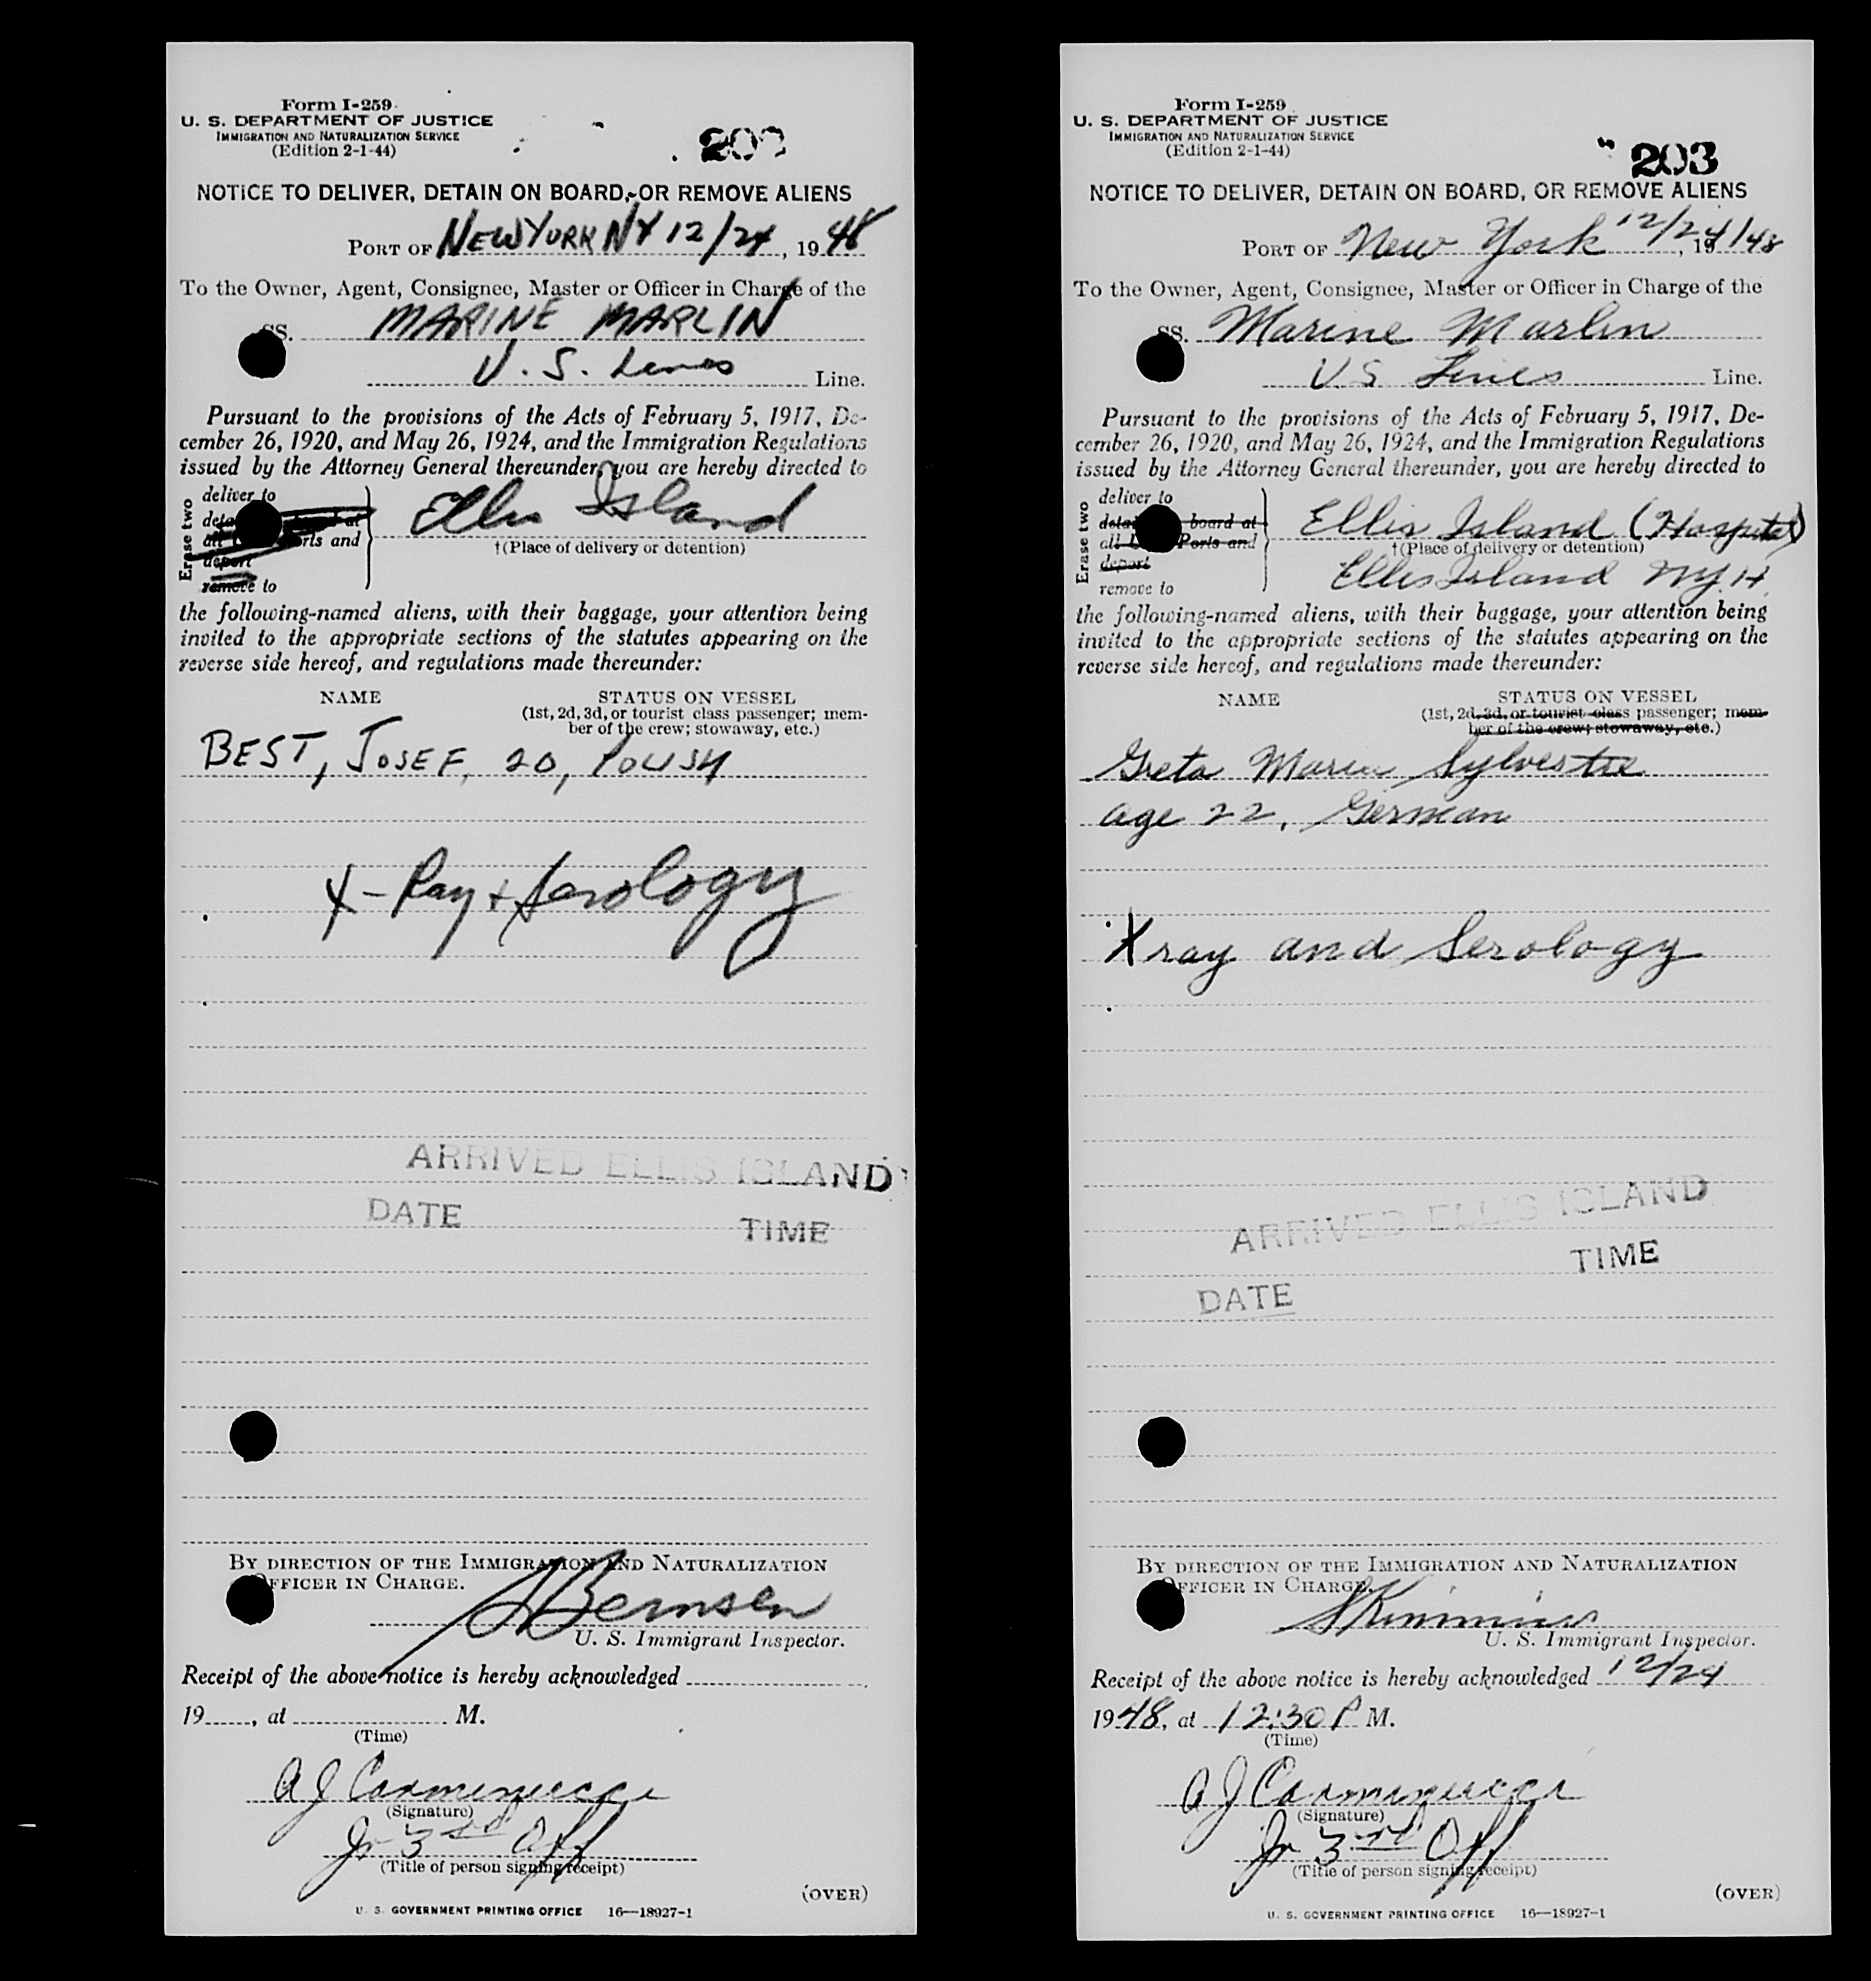 Form I-259
U. S. DEPARTMENT OF JUSTICE
IMMIGRATION AND NATURALIZATION SERVICE
(Edition 2-1-44)
NOTICE TO DELIVER, DETAIN ON BOARD, OR REMOVE ALIENS
PORT OF NEW YORK NY 12/24, 1948
To the Owner, Agent, Consignee, Master or Officer in Charge of the
SS. MARINE MARLIN
U. S. Lines Line.
Pursuant to the provisions of the Acts of February 5, 1917, De-
cember 26, 1920, and May 26, 1924, and the Immigration Regulations
issued by the Attorney General thereunder, you are hereby directed to
Erase two
deliver to
board at
all Ports and
deport
remove to
Ellis Island
†(Place of delivery or detention)
the following-named aliens, with their baggage, your attention being
invited to the appropriate sections of the statutes appearing on the
reverse side hereof, and regulations made thereunder:
NAME STATUS ON VESSEL
(1st, 2d, 3d, or tourist class passenger; mem-
ber of the crew; stowaway, etc.)
BEST, JOSEF, 20, POLISH
X-Ray + Serology
ARRIVED ELLIS ISLAND
DATE TIME
BY DIRECTION OF THE IMMIGRATION AND NATURALIZATION
OFFICER IN CHARGE.
U. S. Immigrant Inspector.
Receipt of the above notice is hereby acknowledged
19, at M.
(Time)
A J
(Signature)
Jr 3rd Off
(Title of person signing receipt)
(OVER)
U. S. GOVERNMENT PRINTING OFFICE 16—18927-1
Form I-259
U. S. DEPARTMENT OF JUSTICE
IMMIGRATION AND NATURALIZATION SERVICE
(Edition 2-1-44)
203
NOTICE TO DELIVER, DETAIN ON BOARD, OR REMOVE ALIENS
PORT OF New York 12/24/48, 19
To the Owner, Agent, Consignee, Master or Officer in Charge of the
SS. Marine Marlin
U.S Lines Line.
Pursuant to the provisions of the Acts of February 5, 1917, De-
cember 26, 1920, and May 26, 1924, and the Immigration Regulations
issued by the Attorney General thereunder, you are hereby directed to
Erase two
deliver to
board at
all Ports and
deport
remove to
Ellis Island (Hospital)
†(Place of delivery or detention)
Ellis Island NY.H.
the following-named aliens, with their baggage, your attention being
invited to the appropriate sections of the statutes appearing on the
reverse side hereof, and regulations made thereunder:
NAME STATUS ON VESSEL
(1st, 2d, 3d, or tourist class passenger; mem-
ber of the crew; stowaway, etc.)
Greta Maria Sylvestre
age 22, German
Xray and Serology
ARRIVED ELLIS ISLAND
TIME
DATE
BY DIRECTION OF THE IMMIGRATION AND NATURALIZATION
OFFICER IN CHARGE.
U. S. Immigrant Inspector.
Receipt of the above notice is hereby acknowledged 12/24
1948, at 12:30 P M.
(Time)
A J
(Signature)
Jr 3rd Off
(Title of person signing receipt)
(OVER)
U. S. GOVERNMENT PRINTING OFFICE 16—18927-1